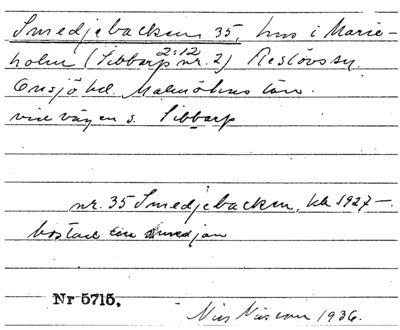 Smedjebacken 35, hus i Marie-
holm (Sibbarp nr. 2) Reslövs sn.
2:12
Onsjö hd. Malmöhus län.
vid vägen s. Sibbarp
nr. 35 Smedjebacken, 1927 –
bostad smedjan
Nr 5715.
Nils Nilsson 1936.